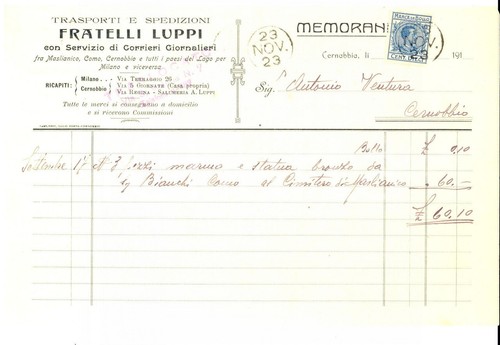 TRASPORTI E SPEDIZIONI
FRATELLI LUPPI
con Servizio di Corrieri Giornalieri
fra Maslianico, Como, Cernobbio e tutti i paesi del Lago per
Milano e viceversa.
RICAPITI:
Milano - VIA TERRAGGIO 26
Cernobbio
VIA 5 GIORNATE (Casa propria)
VIA REGINA - SALUMERIA A. LUPPI
Tutte le merci si consegnano a domicilio
e si ricevono Commissioni
23
NOV.
23
MEMORAN
NOV.
23
Cernobbia, li
191
Sig. Antonio Ventura
Cernobbio
Bollo £ 0,10
Settembre 17 N 3 pezzi marmo e statua bronzo da
Bianchi Como al Cimitero di Maslianico 60.—
£ 60.10